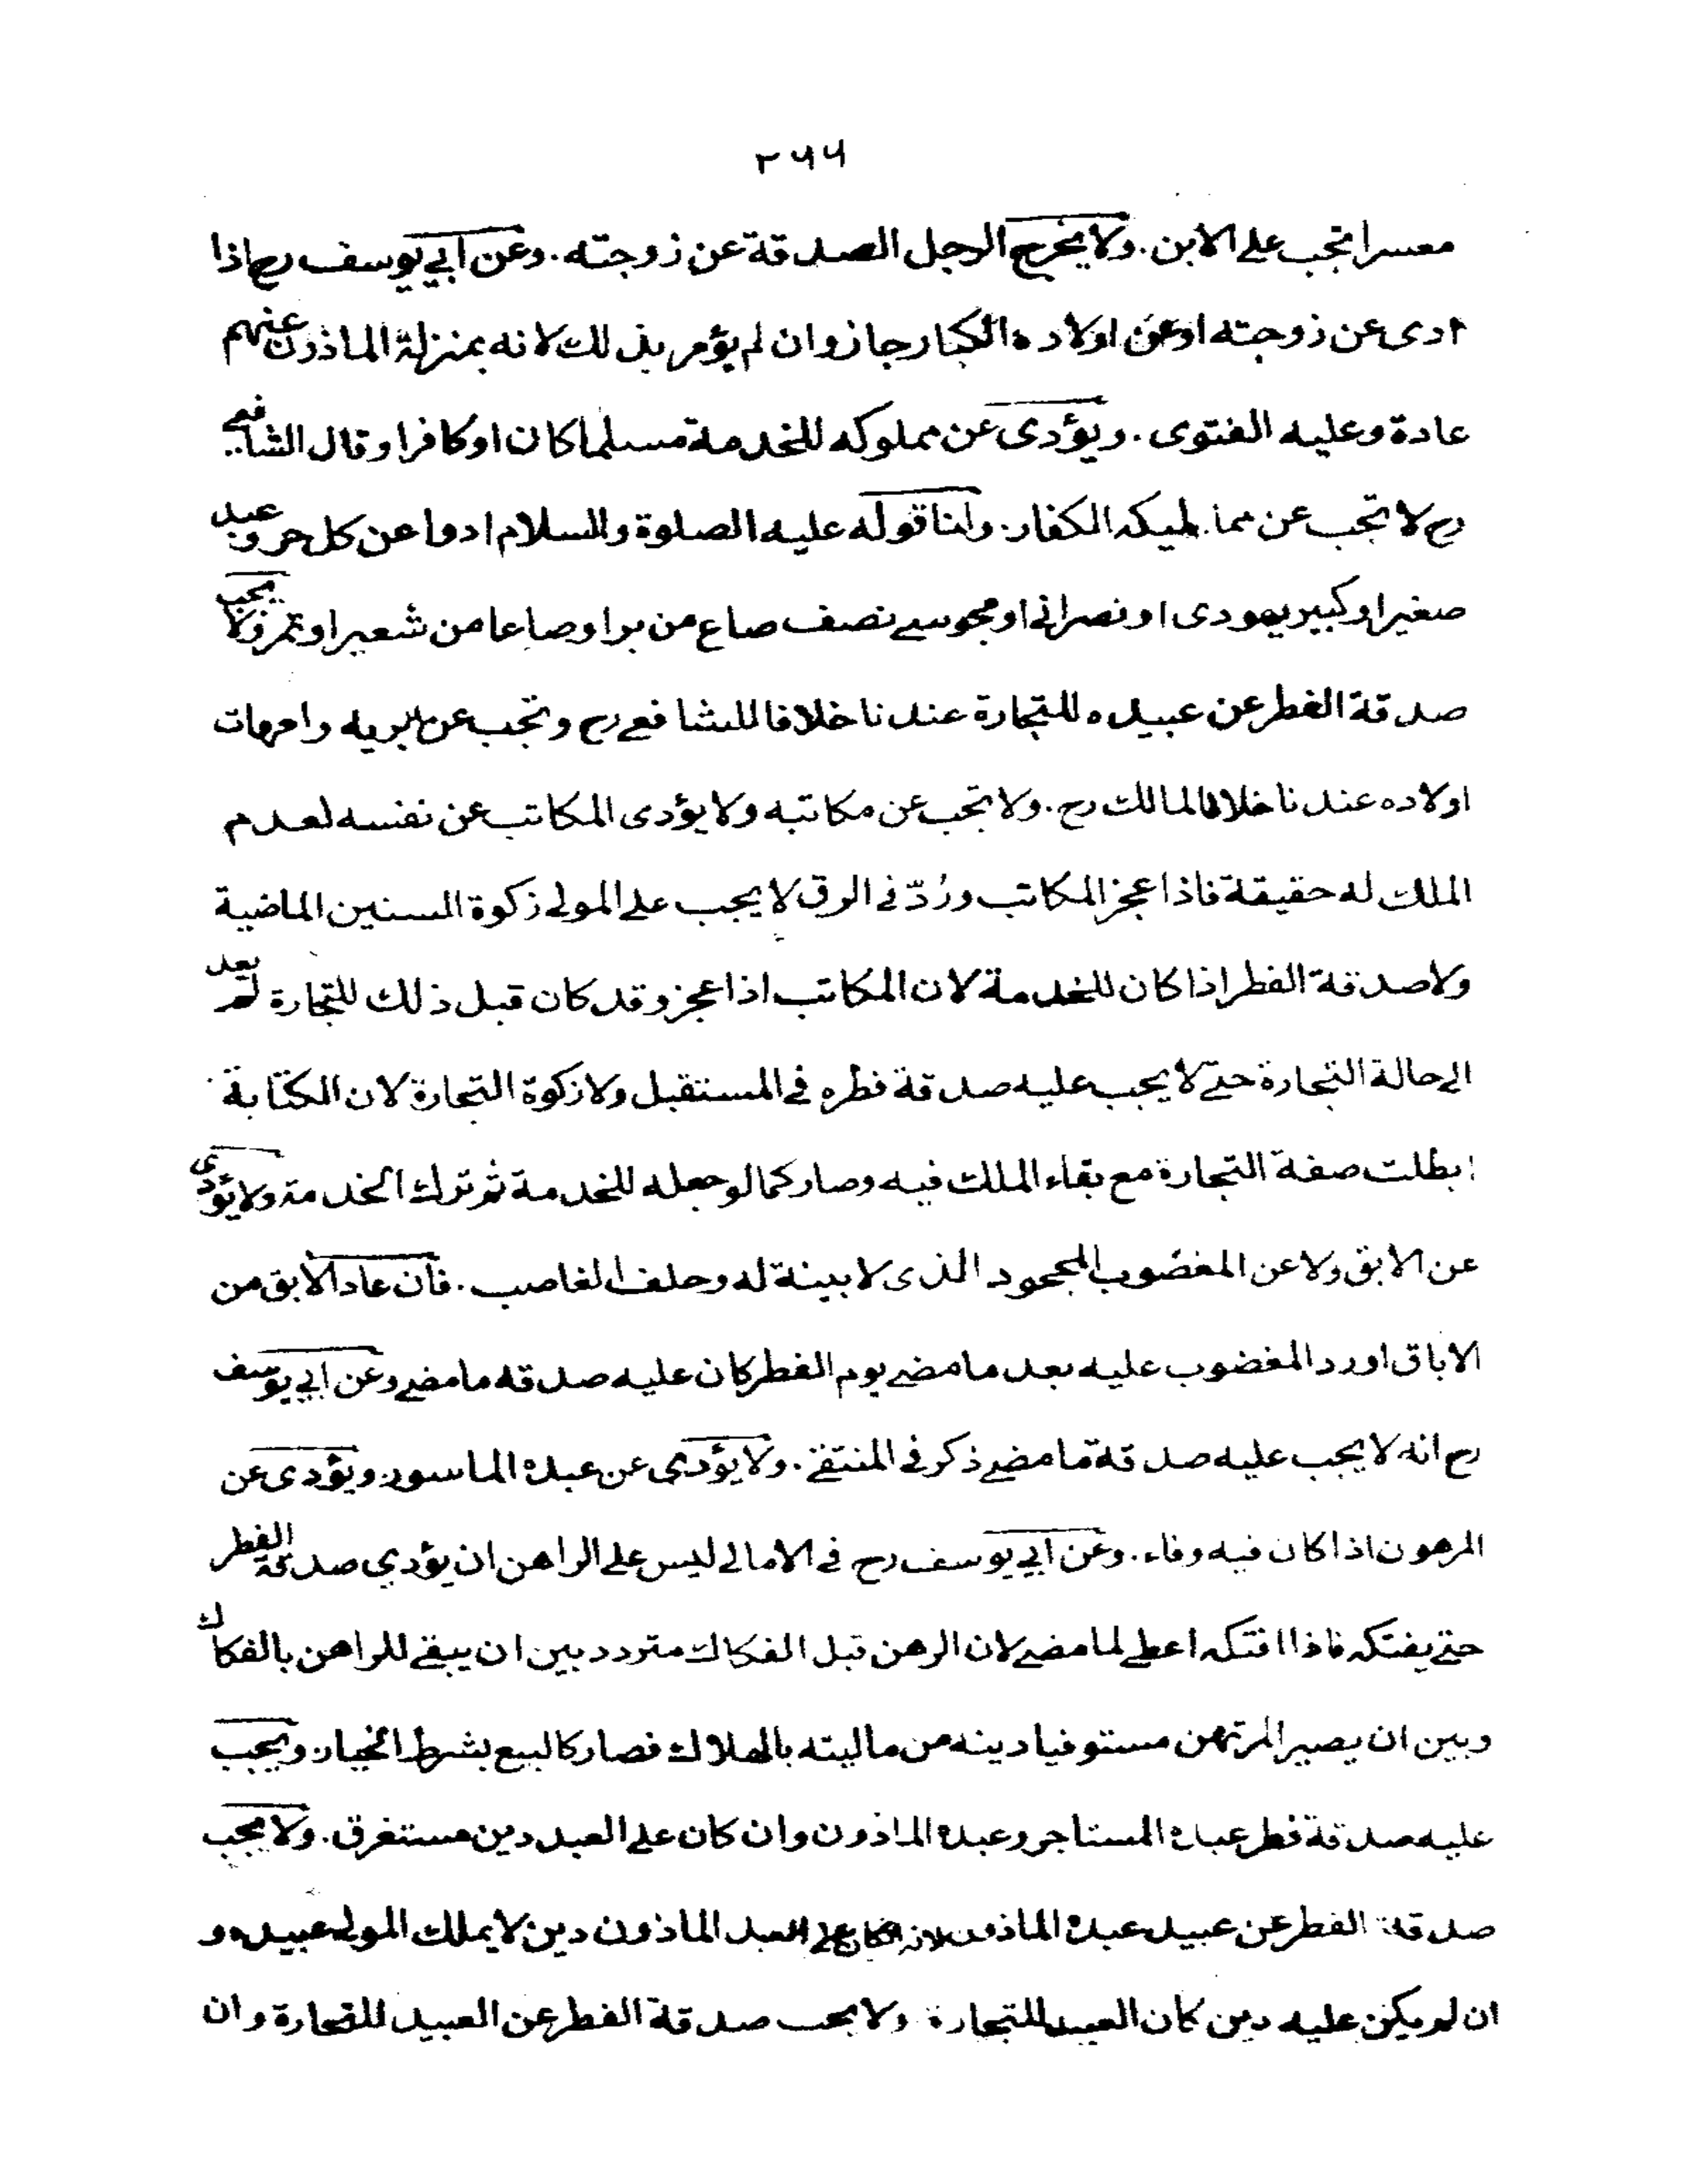 ۲۶۶
معسرا تجب على الابن. ولا يخرج الرجل الصدقة عن زوجته. وعن ابي يوسف رح اذا
ادى عن زوجته او عن اولاده الكبار جاز وان لم يؤمر بذلك لانه بمنزلة الماذون عنهم
عادة وعليه الفتوى. ويؤدى عن مملوكه للخدمة مسلما كان او كافرا وقال الشافعي
رح لا تجب عن مماليكه الكفار. ولنا قوله عليه الصلوة والسلام ادوا عن كل حر وعبد
صغير او كبير يهودى او نصراني او مجوسي نصف صاع من بر او صاعا من شعير او تمر ولا يجب
صدقة الفطر عن عبيده للتجارة عندنا خلافا للشافعي رح وتجب عن مدبريه وامهات
اولاده عندنا خلافا لمالك رح. ولا تجب عن مكاتبه ولا يؤدى المكاتب عن نفسه لعدم
الملك له حقيقة فاذا عجز المكاتب ورُدّ في الرق لا يجب على المولى زكوة السنين الماضية
ولا صدقة الفطر اذا كان للخدمة لان المكاتب اذا عجز وقد كان قبل ذلك للتجارة لم يعد
الى حالة التجارة حتى لا يجب عليه صدقة فطره في المستقبل ولا زكوة التجارة لان الكتابة
ابطلت صفة التجارة مع بقاء الملك فيه وصار كما لو جعله للخدمة ثم ترك الخدمة ولا يؤدى
عن الابق ولا عن المغضوب المجحود الذى لا بينة له وحلف الغاصب. فان عاد الابق من
الاباق او رد المغضوب عليه بعد ما مضى يوم الفطر كان عليه صدقه ما مضى وعن ابي يوسف
رح انه لا يجب عليه صدقة ما مضى ذكر في المنتقى. ولا يؤدى عن عبده الماسور ويؤدى عن
المرهون اذا كان فيه وفاء. وعن ابي يوسف رح في الامالي ليس على الراهن ان يؤدي صدقة الفطر
حتى يفتكه فاذا افتكه اعطى لما مضى لان الرهن قبل الفكاك متردد بين ان يبقى للراهن بالفكاك
وبين ان يصير المرتهن مستوفيا دينه من ماليته بالهلاك فصار كالبيع بشرط الخيار. ويجب
عليه صدقة فطر عبده المستاجر وعبده الماذون وان كان على العبد دين مستغرق. ولا يجب
صدقة الفطر عن عبيد عبده الماذون لانه ان كان على العبد الماذون دين لا يملك المولى عبيده و
ان لم يكن عليه دين كان العبيد للتجارة ولا يجب صدقة الفطر عن العبيد للتجارة وان